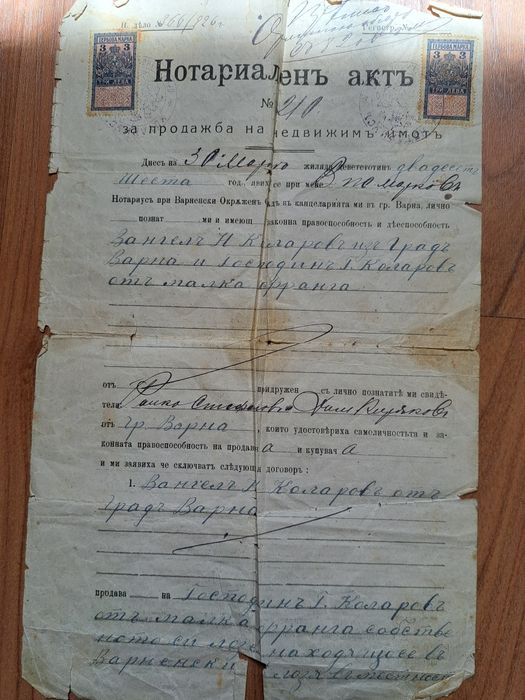 Н. дѣло № 366/926 г.
Регистръ
ГЕРБОВА МАРКА
3 3
ТРИ ЛЕВА
ГЕРБОВА МАРКА
3 3
ТРИ ЛЕВА
Нотариаленъ актъ
№ 210
за продажба на недвижимъ имотъ
Днесъ на 30 Мартъ хиляда деветстотинъ двадесеть
шеста год., яви се при мене Марковъ
Нотариусъ при Варненски Окрѫженъ Сѫдъ въ канцеларията ми въ гр. Варна, лично
познат ми и имеющ законна правоспособность и дѣеспособность
Вангелъ Н. Коларовъ изъ градъ
Варна и Господинъ Г. Коларовъ
отъ малка франга
отъ придружен съ лично познатитѣ ми свидѣ-
тели
отъ гр. Варна, които удостовѣриха самоличностьта и за-
конната правоспособность на продавача и купувача
и ми заявиха че сключватъ слѣдующия договоръ:
1. Вангелъ Н. Коларовъ отъ
градъ Варна
продава на Господинъ Г. Коларовъ
отъ малка франга собстве
ното си лозе находящосе въ
Варненски лозя въ местност